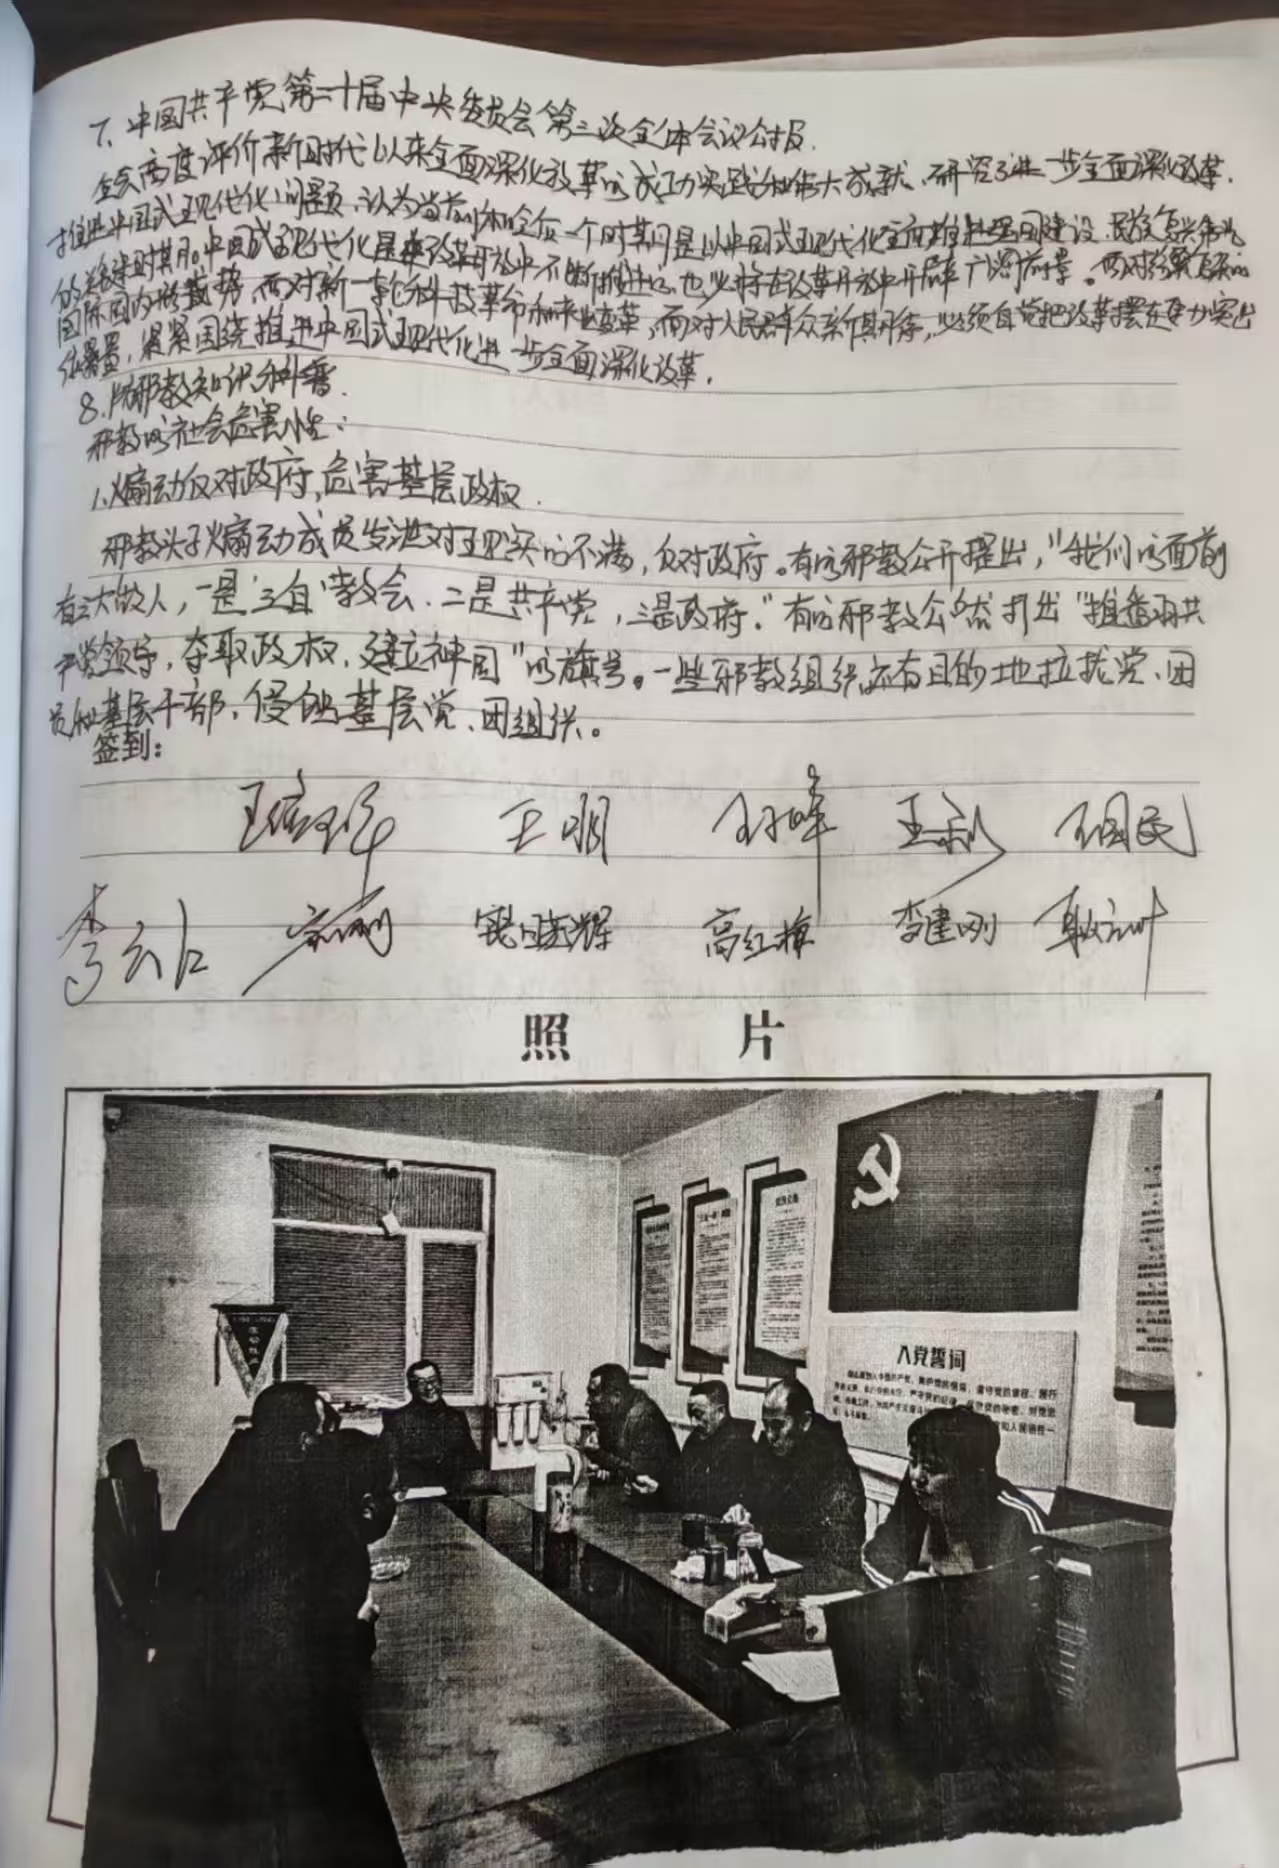 7、中国共产党第二十届中央委员会第三次全体会议公报.
全会高度评价新时代以来全面深化改革的成功实践和伟大成就,研究了进一步全面深化改革.
推进中国式现代化问题,认为当前和今后一个时期是以中国式现代化全面推进强国建设、民族复兴伟业
的关键时期。中国式现代化是在改革开放中不断推进的,也必将在改革开放中开辟广阔前景。面对纷繁复杂的
国际国内形势,面对新一轮科技革命和产业变革,面对人民群众新期待,必须自觉把改革摆在更加突出
位置,紧紧围绕推进中国式现代化进一步全面深化改革.
8.防邪教知识科普.
邪教的社会危害性:
1.煽动反对政府,危害基层政权.
邪教头子煽动成员发泄对现实的不满,反对政府。有的邪教公开提出,"我们的面前
有三大敌人,一是"三自"教会.二是共产党,三是政府."有的邪教公然打出"推翻共
产党领导,夺取政权,建立神国"的旗号。一些邪教组织还有目的地拉拢党、团
员和基层干部,侵蚀基层党、团组织。
签到:
王明 王国民
李云 高红梅 李建刚
照 片
入党誓词